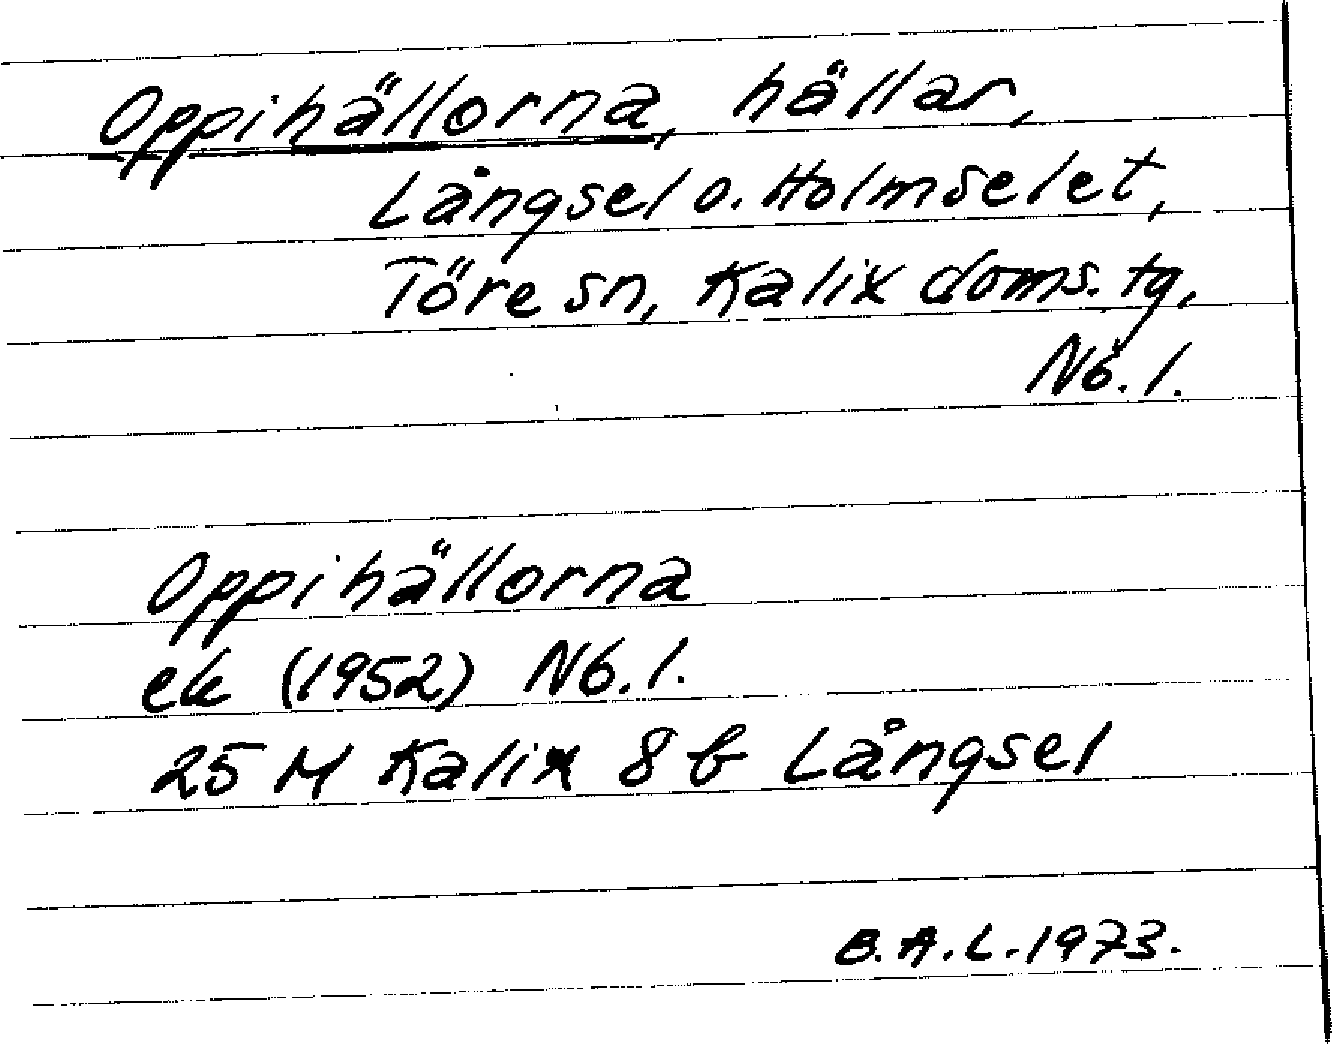 Oppihällorna, hällar,
Långsel o. Holmselet,
Töre sn, Kalix doms. tg,
Nb. l.
Oppihällorna
ek (1952) Nb. l.
25 M Kalix 8 b Långsel
B.A.L. 1973.